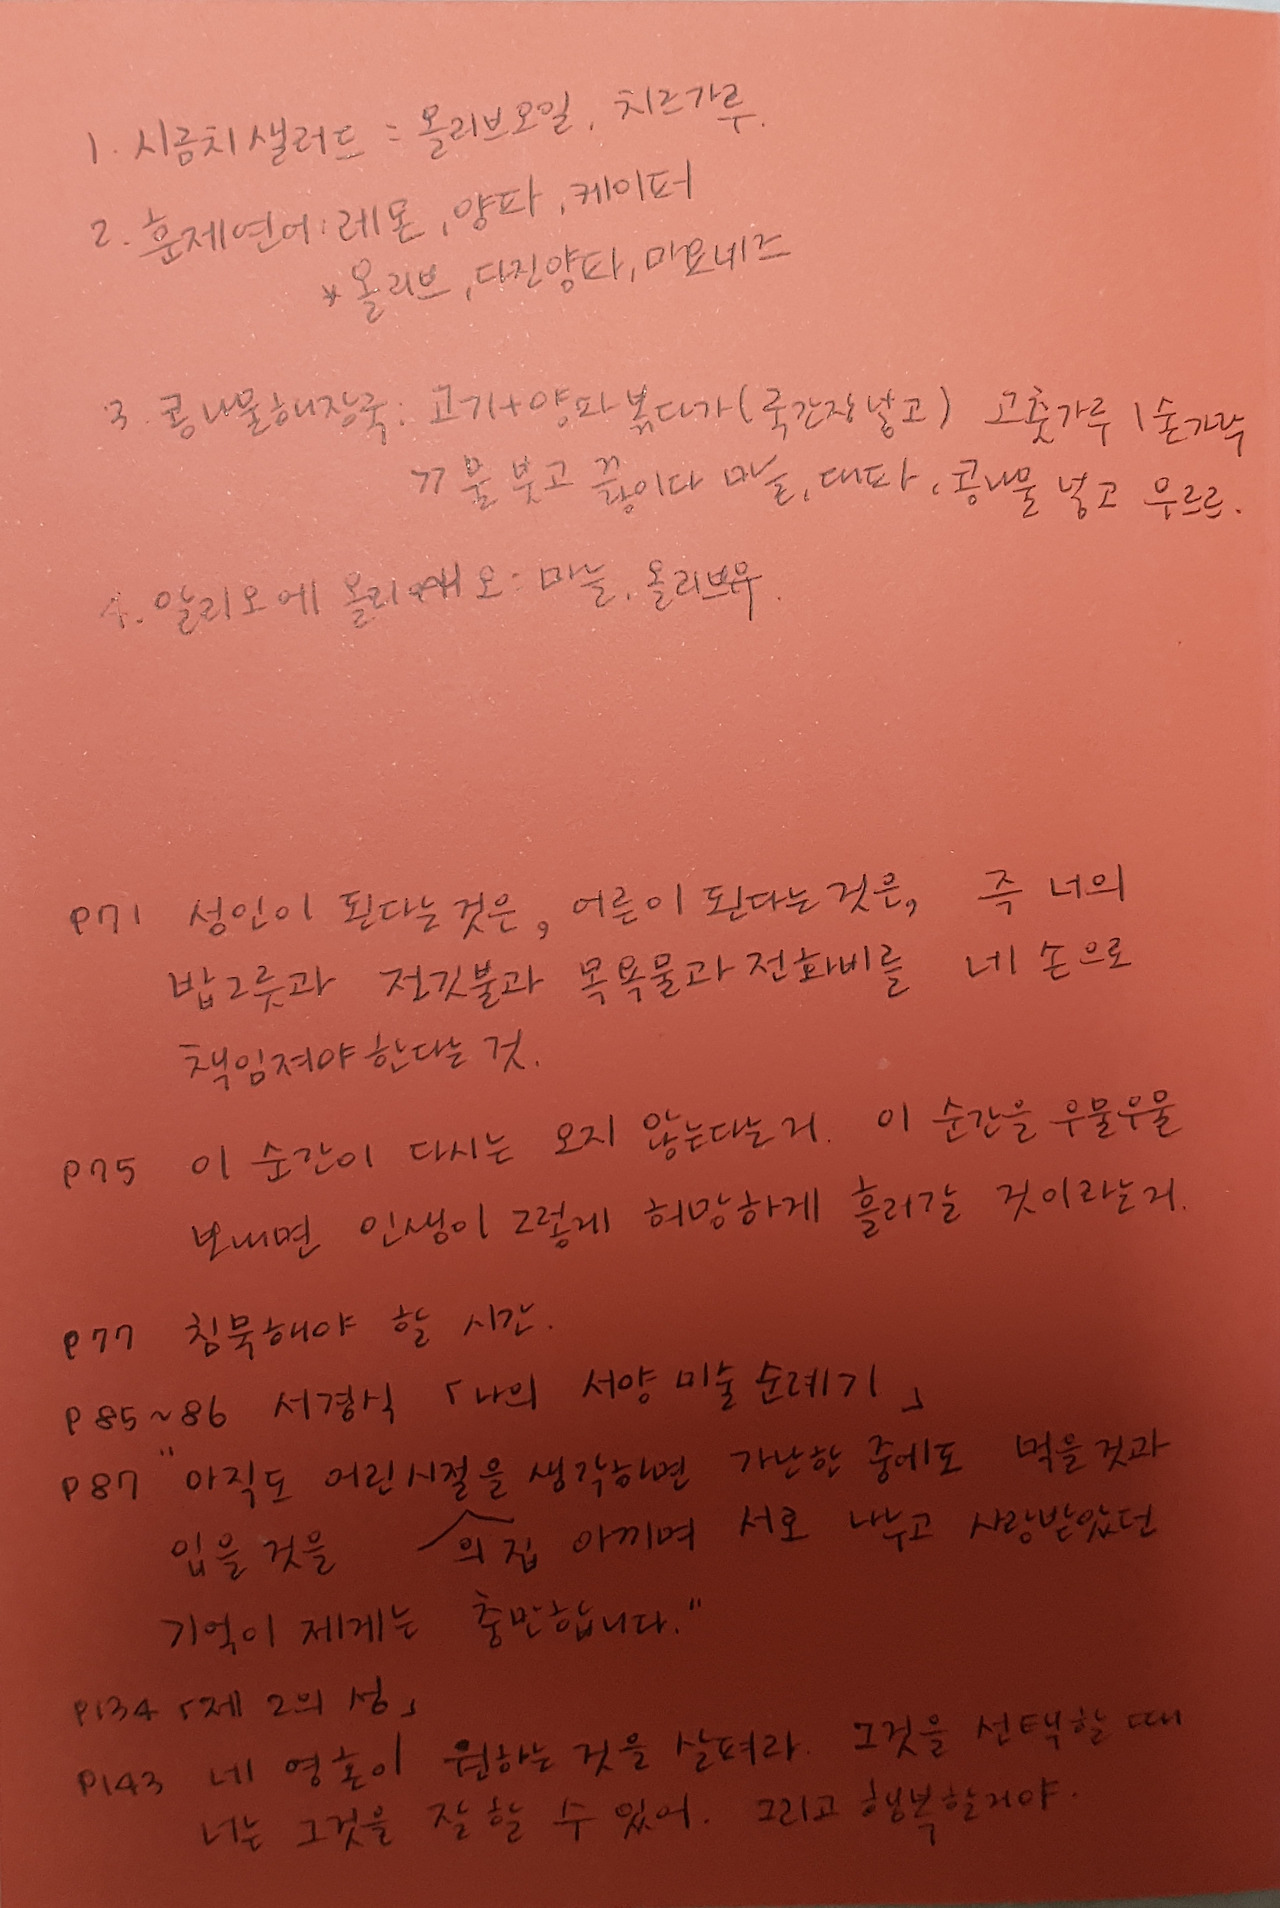 1. 시금치샐러드 = 올리브오일, 치즈가루.
2. 훈제연어 : 레몬, 양파, 케이퍼
* 올리브, 다진양파, 마요네즈
3. 콩나물해장국 : 고기+양파 볶다가 (국간장 넣고) 고춧가루 1숟가락
물 붓고 끓이다 마늘, 대파, 콩나물 넣고 우르르.
4. 알리오에 올리에오 : 마늘, 올리브유.
P71 성인이 된다는것은, 어른이 된다는것은, 즉 너의
밥그릇과 전깃불과 목욕물과 전화비를 네 손으로
책임져야한다는 것.
P75 이 순간이 다시는 오지 않는다는거. 이 순간을 우물우물
보내면 인생이 그렇게 허망하게 흘러갈 것이라는거.
P77 침묵해야 할 시간.
P85~86 서경식 「나의 서양 미술 순례기」
P87 "아직도 어린시절을 생각하면 가난한 중에도 먹을것과
입을 것을 의 집 아끼며 서로 나누고 사랑받았던
기억이 제게는 충만합니다."
P134 「제 2의 성」
P143 네 영혼이 원하는 것을 살펴라. 그것을 선택할 때
너는 그것을 잘 할 수 있어. 그리고 행복할거야.